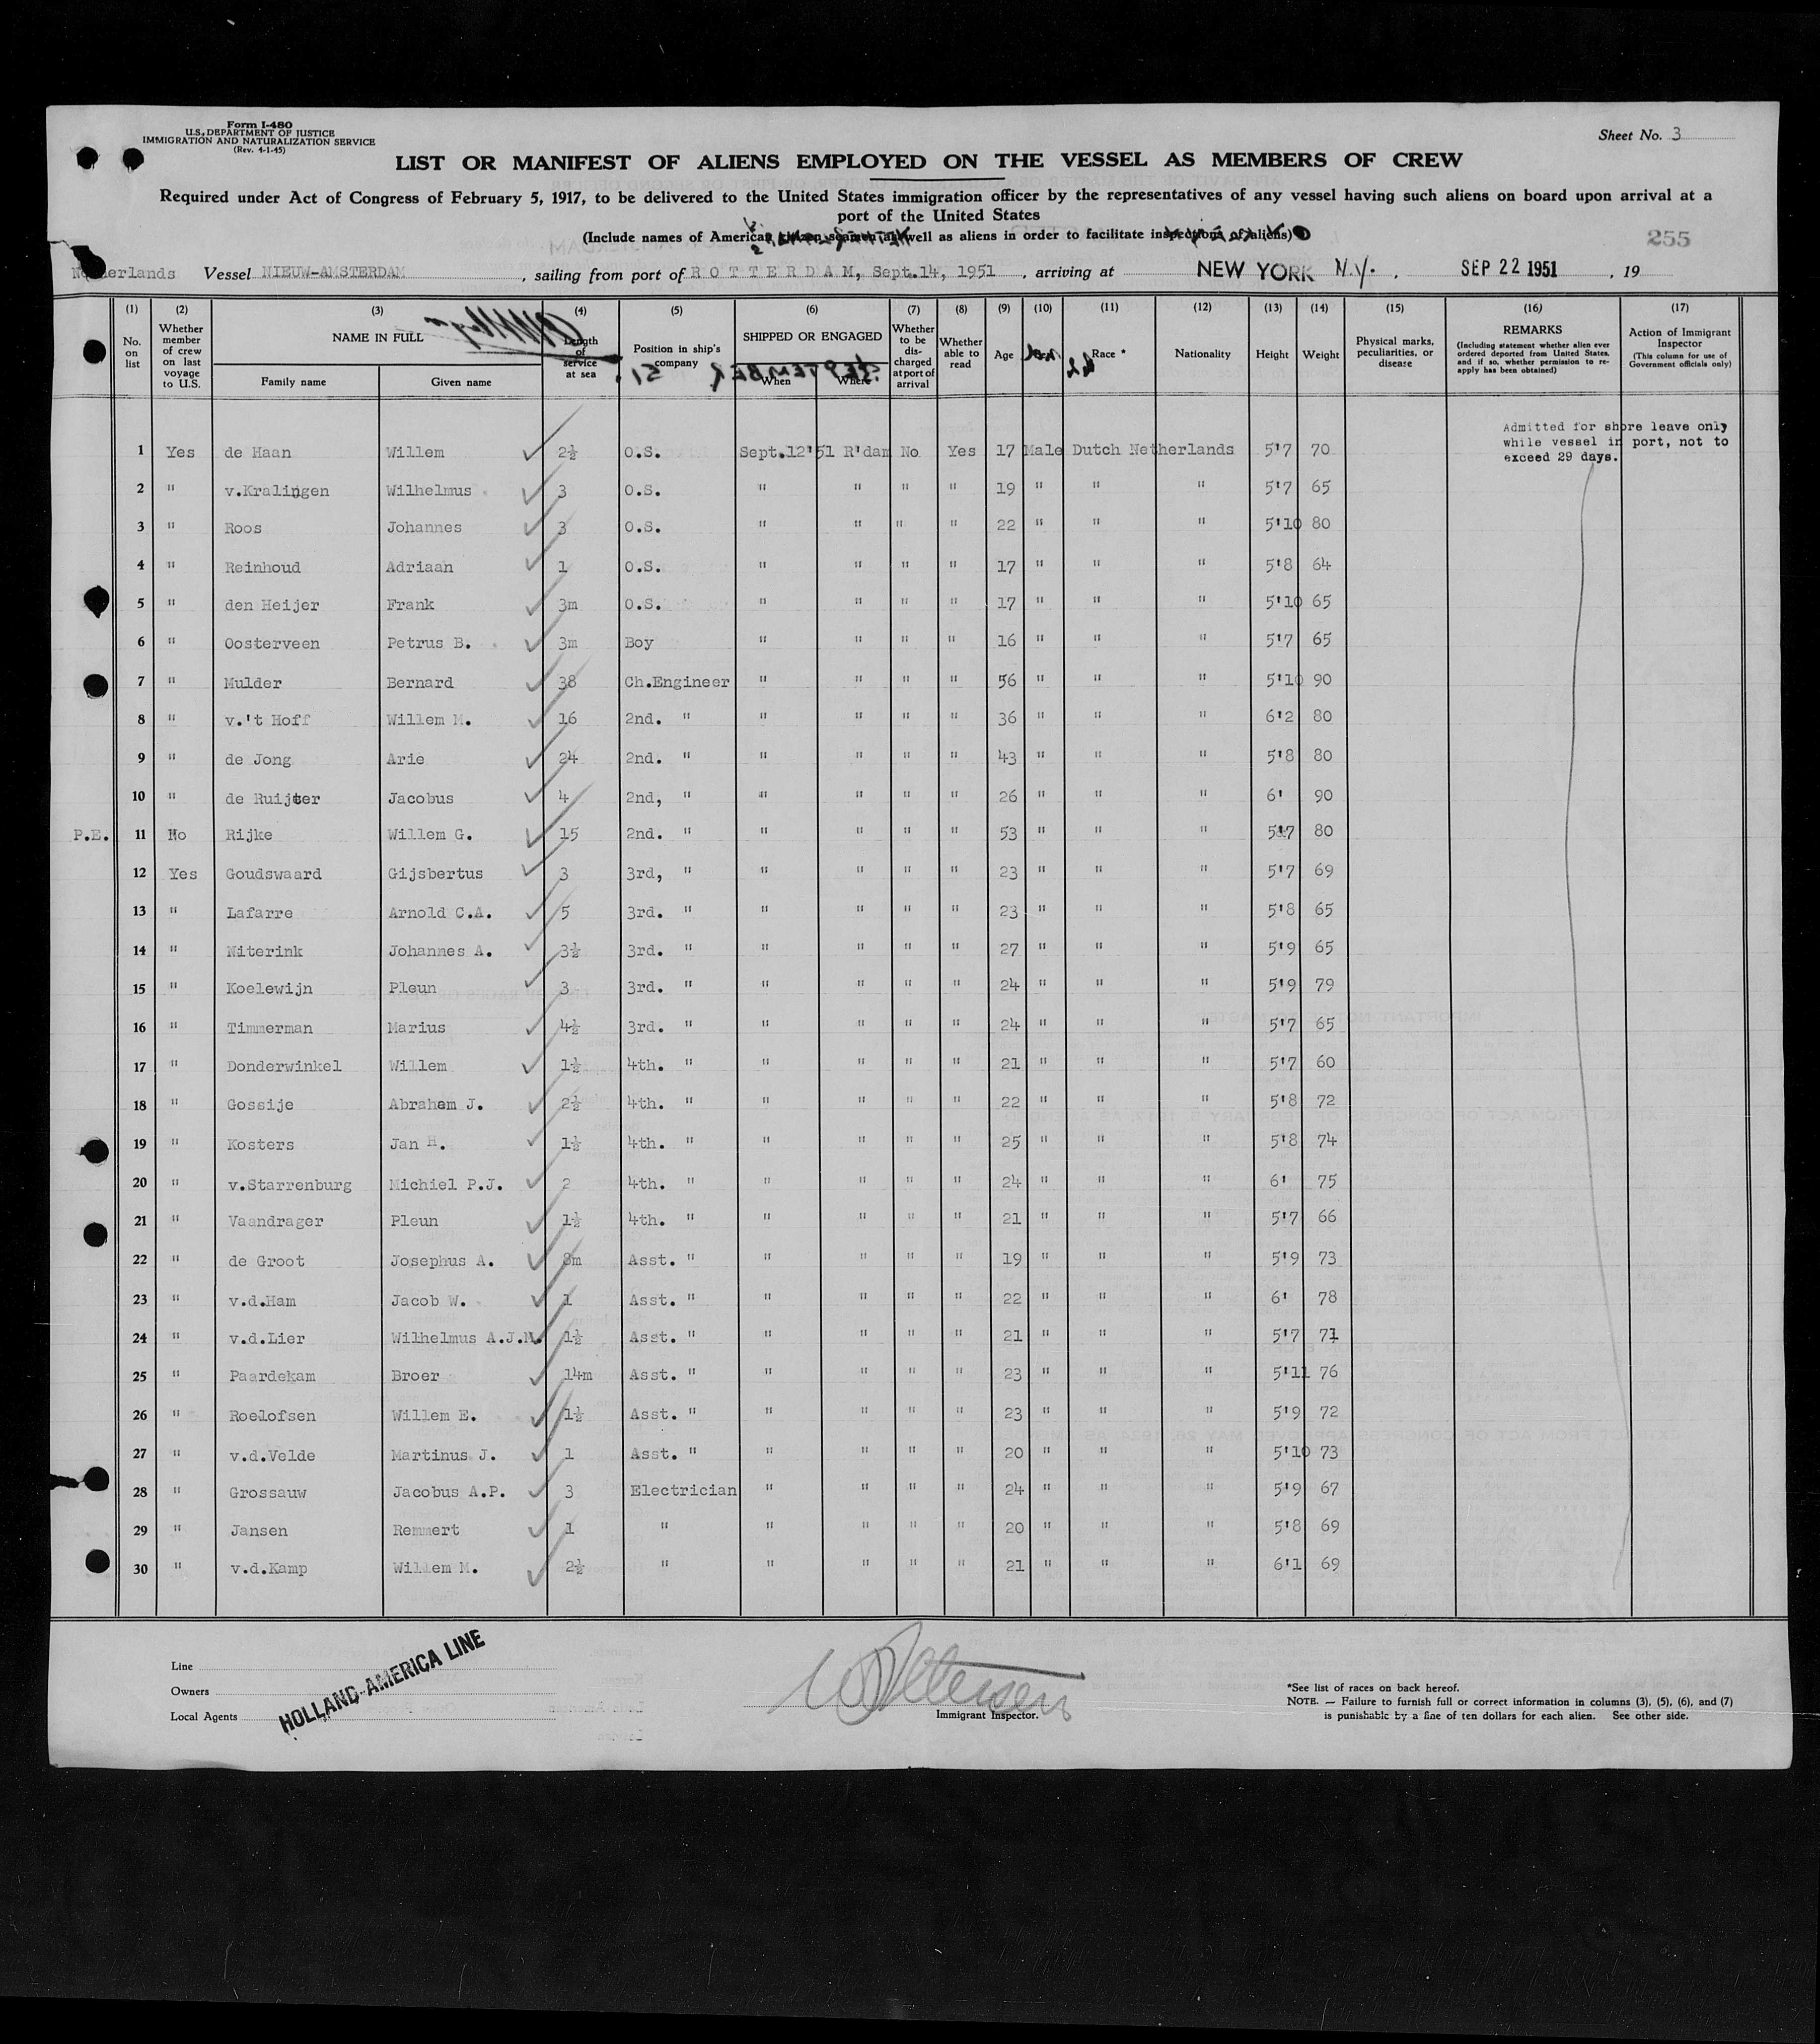 Form I-480
U.S. DEPARTMENT OF JUSTICE
IMMIGRATION AND NATURALIZATION SERVICE
(Rev. 4-1-45)
Sheet No. 3
LIST OR MANIFEST OF ALIENS EMPLOYED ON THE VESSEL AS MEMBERS OF CREW
Required under Act of Congress of February 5, 1917, to be delivered to the United States immigration officer by the representatives of any vessel having such aliens on board upon arrival at a
port of the United States
(Include names of American citizen seamen as well as aliens in order to facilitate inspections of aliens)
255
Netherlands Vessel NIEUW-AMSTERDAM , sailing from port of ROTTERDAM, Sept.14, 1951 , arriving at NEW YORK N.Y. , SEP 22 1951 , 19
(1) (2) (3) (4) (5) (6) (7) (8) (9) (10) (11) (12) (13) (14) (15) (16) (17)
No. on list
Whether member of crew on last voyage to U.S.
NAME IN FULL
Family name
Given name
Length of service at sea
Position in ship's company
SHIPPED OR ENGAGED
When
Where
Whether to be discharged at port of arrival
Whether able to read
Age
Race *
Nationality
Height
Weight
Physical marks, peculiarities, or disease
REMARKS
(Including statement whether alien ever ordered deported from United States, and if so, whether permission to reapply has been obtained)
Action of Immigrant Inspector
(This column for use of Government officials only)
Admitted for shore leave only
while vessel in port, not to
exceed 29 days.
1 Yes de Haan Willem 2½ O.S. Sept.12'51 R'dam No Yes 17 Male Dutch Netherlands 5'7 70
2 " v.Kralingen Wilhelmus 3 O.S. " " " " 19 " " " 5'7 65
3 " Roos Johannes 3 O.S. " " " " 22 " " " 5'10 80
4 " Reinhoud Adriaan 1 O.S. " " " " 17 " " " 5'8 64
5 " den Heijer Frank 3m O.S. " " " " 17 " " " 5'10 65
6 " Oosterveen Petrus B. 3m Boy " " " " 16 " " " 5'7 65
7 " Mulder Bernard 38 Ch.Engineer " " " " 56 " " " 5'10 90
8 " v.'t Hoff Willem M. 16 2nd. " " " " " 36 " " " 6'2 80
9 " de Jong Arie 24 2nd. " " " " " 43 " " " 5'8 80
10 " de Ruijter Jacobus 4 2nd, " " " " " 26 " " " 6' 90
P.E. 11 No Rijke Willem G. 15 2nd. " " " " " 53 " " " 5'7 80
12 Yes Goudswaard Gijsbertus 3 3rd, " " " " " 23 " " " 5'7 69
13 " Lafarre Arnold C.A. 5 3rd. " " " " " 23 " " " 5'8 65
14 " Niterink Johannes A. 3½ 3rd. " " " " " 27 " " " 5'9 65
15 " Koelewijn Pleun 3 3rd. " " " " " 24 " " " 5'9 79
16 " Timmerman Marius 4½ 3rd. " " " " " 24 " " " 5'7 65
17 " Donderwinkel Willem 1½ 4th. " " " " " 21 " " " 5'7 60
18 " Gossije Abraham J. 2½ 4th. " " " " " 22 " " " 5'8 72
19 " Kosters Jan H. 1½ 4th. " " " " " 25 " " " 5'8 74
20 " v.Starrenburg Michiel P.J. 2 4th. " " " " " 24 " " " 6' 75
21 " Vaandrager Pleun 1½ 4th. " " " " " 21 " " " 5'7 66
22 " de Groot Josephus A. 8m Asst. " " " " " 19 " " " 5'9 73
23 " v.d.Ham Jacob W. 1 Asst. " " " " " 22 " " " 6' 78
24 " v.d.Lier Wilhelmus A.J.M. 1½ Asst. " " " " " 21 " " " 5'7 71
25 " Paardekam Broer 14m Asst. " " " " " 23 " " " 5'11 76
26 " Roelofsen Willem E. 1½ Asst. " " " " " 23 " " " 5'9 72
27 " v.d.Velde Martinus J. 1 Asst. " " " " " 20 " " " 5'10 73
28 " Grossauw Jacobus A.P. 3 Electrician " " " " 24 " " " 5'9 67
29 " Jansen Remmert 1 " " " " " 20 " " " 5'8 69
30 " v.d.Kamp Willem M. 2½ " " " " " 21 " " " 6'1 69
Line
Owners
Local Agents
HOLLAND-AMERICA LINE
Immigrant Inspector.
*See list of races on back hereof.
NOTE. — Failure to furnish full or correct information in columns (3), (5), (6), and (7)
is punishable by a fine of ten dollars for each alien. See other side.